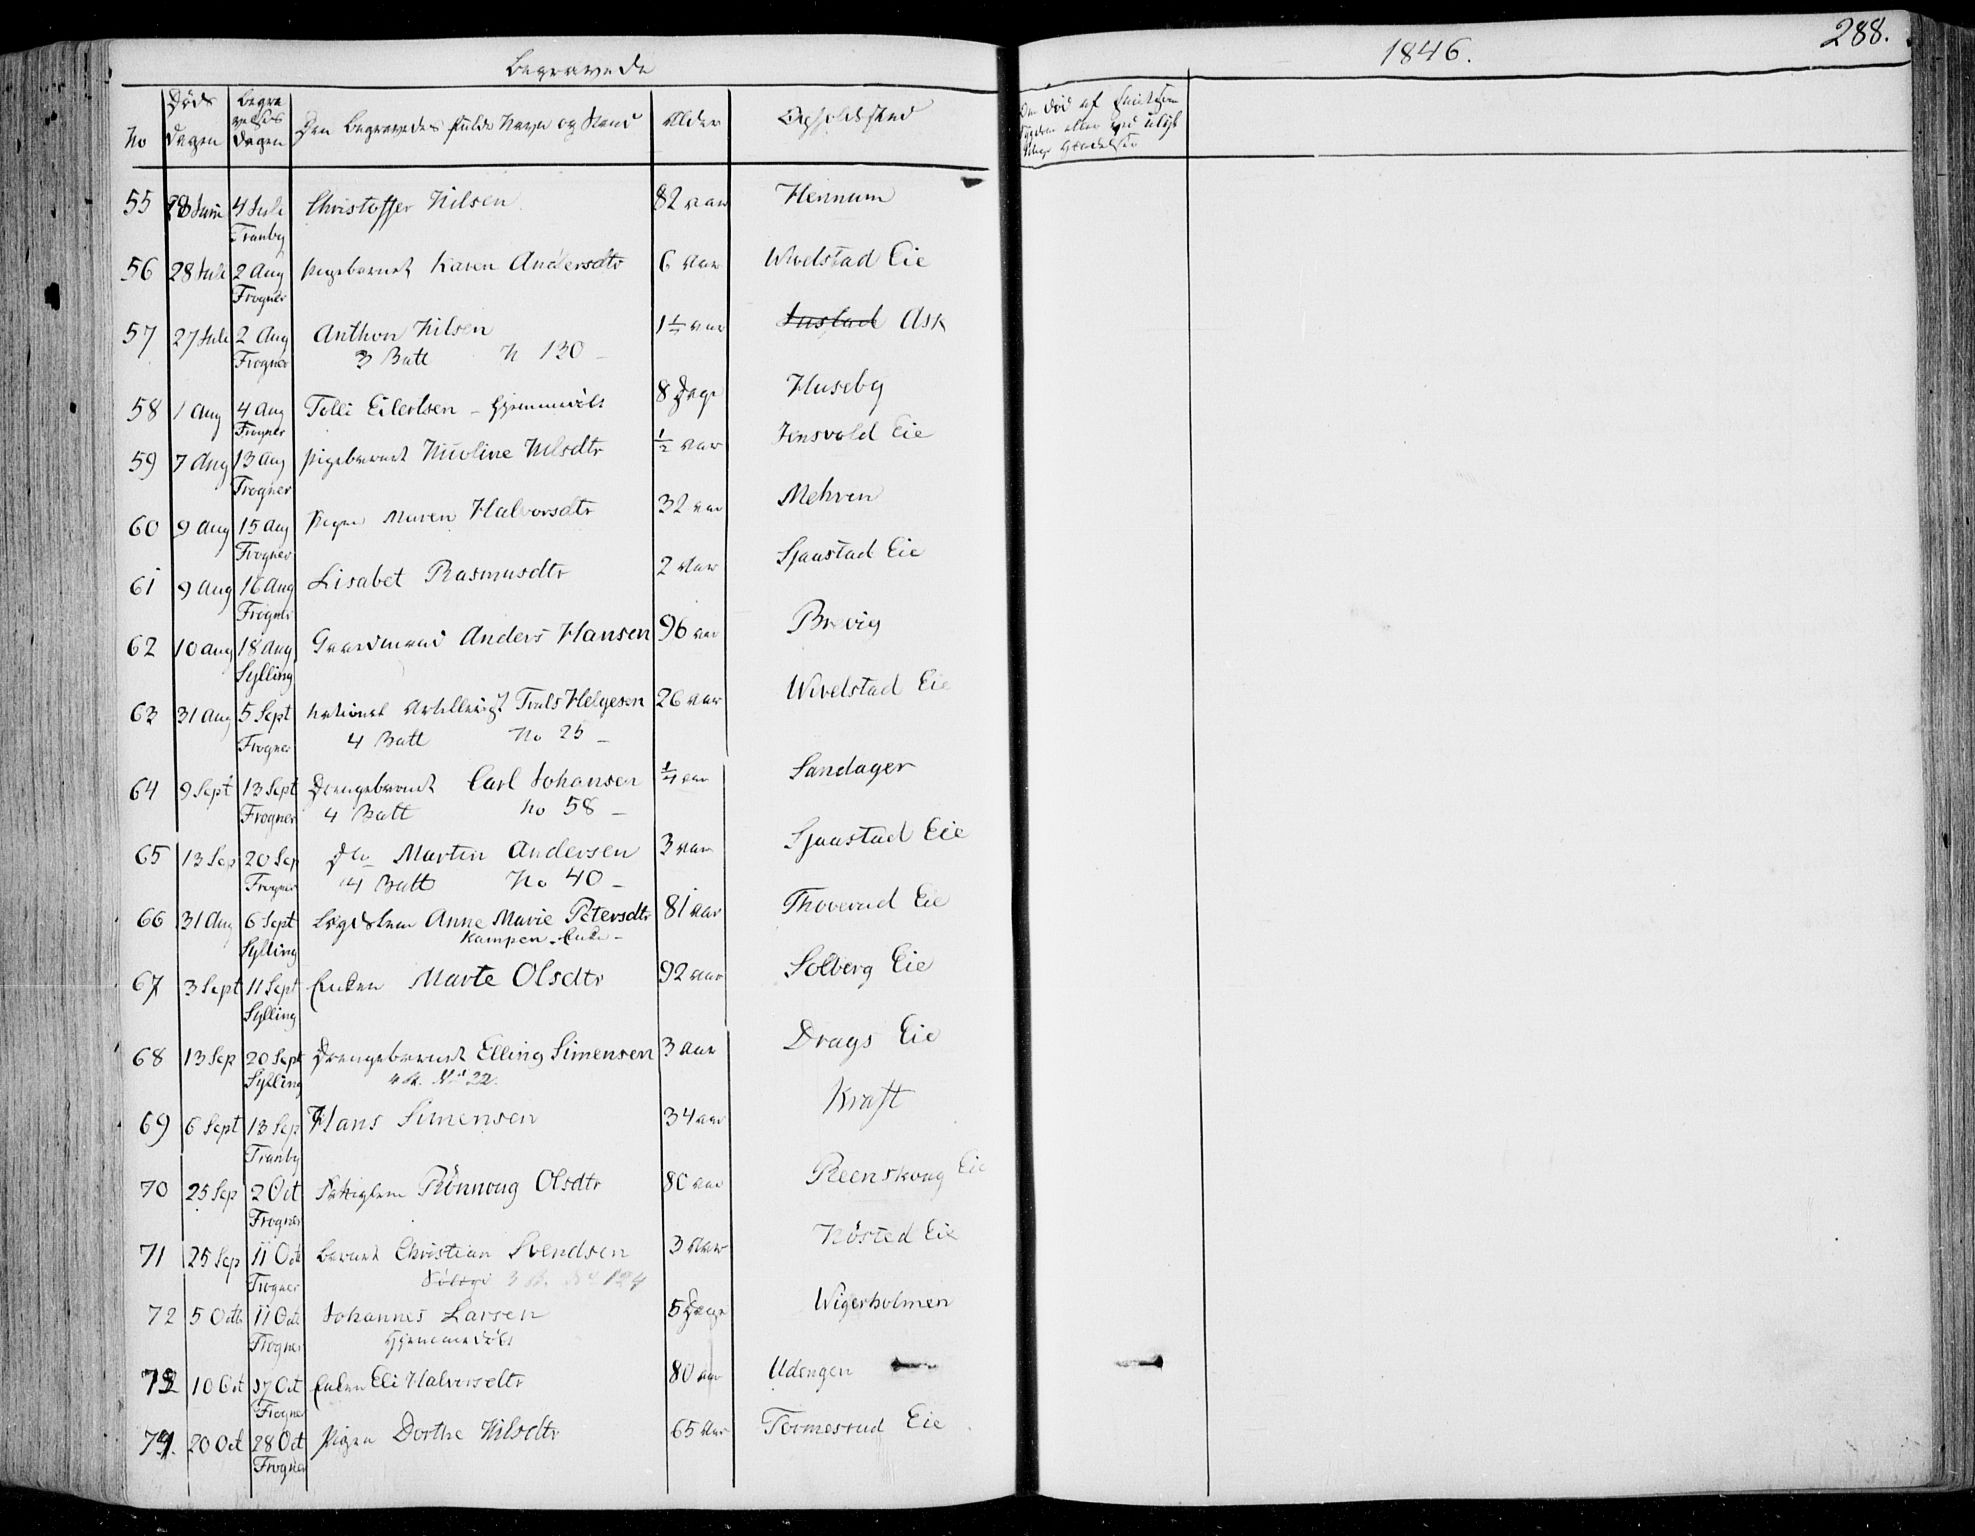 Begravede
1846.
288.
No
Døds Dagen
Begravelses Dagen
Den Begravedes fulde Navn og Stand
Alder
Opholdssted
55 28 Juni 4 Juli Christoffer Nilsen 82 aar Hennum
Tranby
56 28 Juli 2 Aug Pigebarnet Karen Andersdtr 6 Aar Wivelstad Eie
Frogner
57 27 Juli 2 Aug Anthon Nilsen 1½ aar Justad Ask
Frogner 3 Batt N 130 –
58 1 Aug 4 Aug Tolli Eilertsen – Hjemmedöbt 8 Dage Huseby
Frogner
59 7 Aug 13 Aug Pigebarnet Nicoline Nilsdtr ½ aar Jonsvold Eie
Frogner
60 9 Aug 15 Aug Pigen Maren Halvorsdtr 32 aar Mehren
Frogner
61 9 Aug 16 Aug Lisabet Rasmusdtr 2 Aar Sjaastad Eie
Frogner
62 10 Aug 18 Aug Gaardmand Anders Hansen 96 aar Brevig
Sylling
63 31 Aug 5 Sept national Artillerist Truls Helgesen 26 aar Wivelstad Eie
Frogner 4 Batt No 25 –
64 9 Sept 13 Sept Drengebarnet Carl Johansen ¼ aar Sandager
Frogner 4 Batt No 58 –
65 13 Sep 20 Sep Dto Martin Andersen 3 aar Sjaastad Eie
Frogner 4 Batt No 40 –
66 31 Aug 6 Sept Lægdslem Anne Marie Petersdtr 81 aar Thoverud Eie
Sylling Kampen – Enke –
67 3 Sept 11 Sept Enken Marte Olsdtr 92 aar Solberg Eie
Sylling
68 13 Sep 20 Sept Drengebarnet Elling Simensen 3 aar Drags Eie
Sylling 4 B. No 22.
69 6 Sept 13 Sep Hans Simensen 34 aar Kraft
Tranby
70 25 Sep 2 Oct Rönnoug Olsdtr 80 aar Reenskoug Eie
Frogner
71 25 Sep 11 Oct Barnet Christian Svendsen 3 Aar Nösted Eie
Frogner 3 B. No 124
72 5 Octb 11 Oct Johannes Larsen 5 Dage Wigerholmen
Frogner Hjemmedöbt
73 10 Oct 17 Oct Enken Eli Halvorsdtr 80 aar Udengen
Frogner
74. 20 Oct 28 Oct Pigen Dorthe Nilsdtr 65 Aar Tormesrud Eie
Frogner